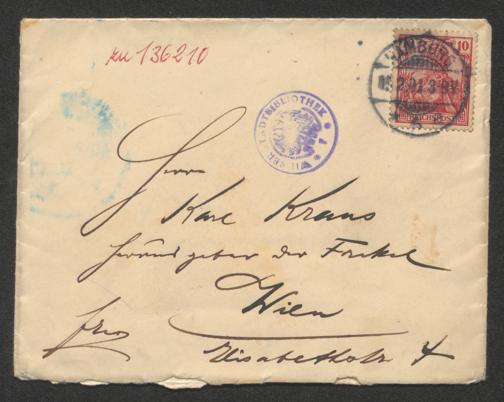 zu 136210
HAMBURG
10
WIENER STADTBIBLIOTHEK
Herrn
Karl Kraus
Herausgeber der Fackel
Wien
frco
Elisabethstr 4